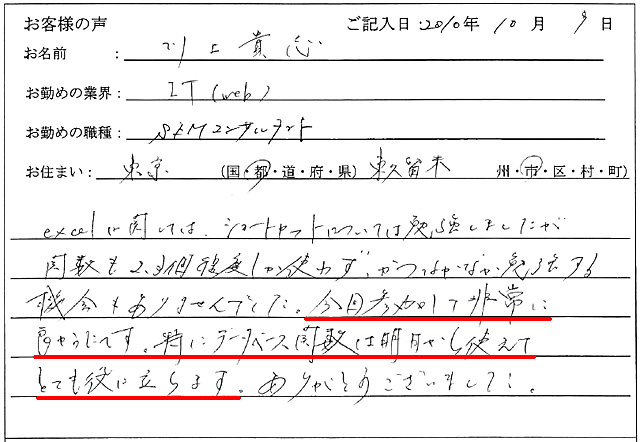 お客様の声 ご記入日:2010年 10月 9日
お名前 : 川上貴志
お勤めの業界: IT (web)
お勤めの職種: SEMコンサルタント
お住まい: 東京 (国・都・道・府・県) 東久留米 州・市・区・村・町)
excelに関しては、ショートカットについては勉強しましたが
関数も2,3個程度しか使わず、かつなかなか勉強する
機会もありませんでした。今回参加して非常に
良かったです。特にデータベース関数は明日から使えて
とても役に立ちます。ありがとうございました。